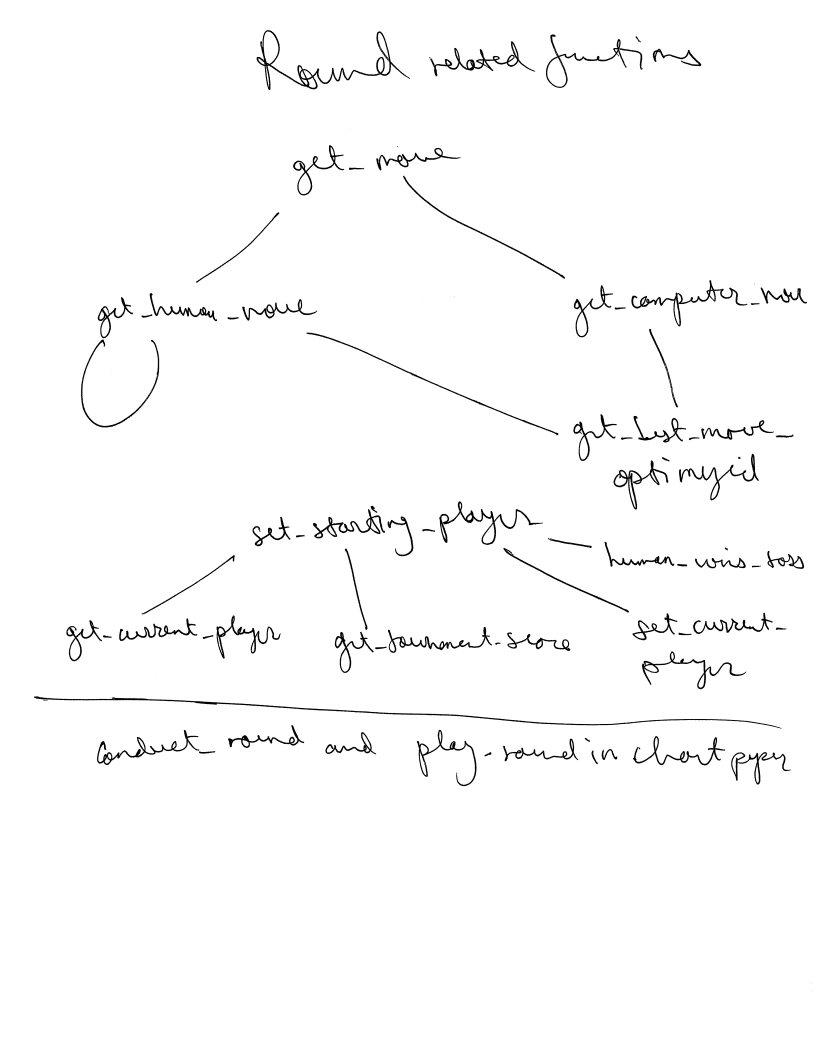 Round related functions
get_move
get_human_move
get_computer_move
get_best_move_
optimized
set_starting_player
human_wins_toss
get_current_player
get_tournament_score
set_current_
player
Conduct_round and play_round in chart paper